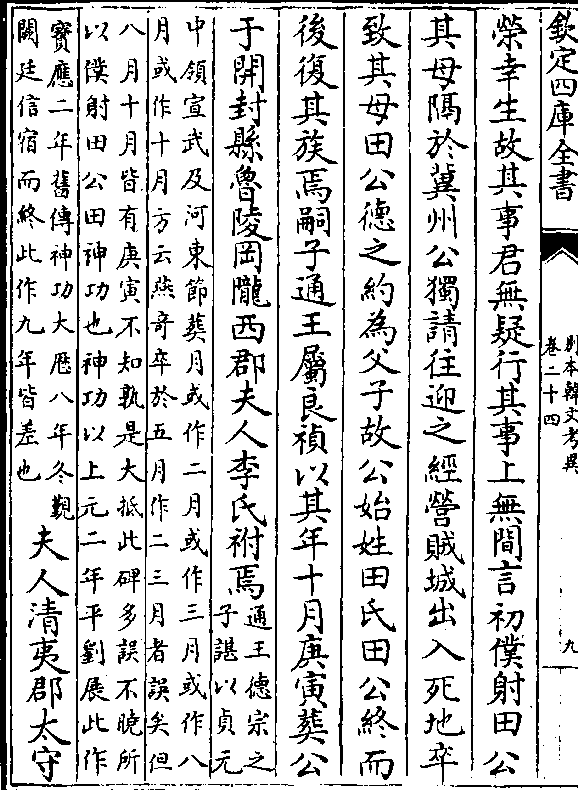 欽定四庫全書
別本韓文考異
卷二十四
九
榮幸生故其事君無疑行其事上無間言初僕射田公
其母隔於冀州公獨請往迎之經營賊城出入死地卒
致其母田公德之約為父子故公始姓田氏田公終而
後復其族焉嗣子通王屬良禎以其年十月庚寅葬公
于開封縣魯陵岡隴西郡夫人李氏祔焉通王德宗之
子諶以貞元
中領宣武及河東節葬月或作二月或作三月或作八
月或作十月方云燕奇卒於五月作二三月者誤矣但
八月十月皆有庚寅不知孰是大抵此碑多誤不曉所
以僕射田公田神功也神功以上元二年平劉展此作
寳應二年舊傳神功大厯八年冬覲
闕廷信宿而終此作九年皆差也
夫人清夷郡太守